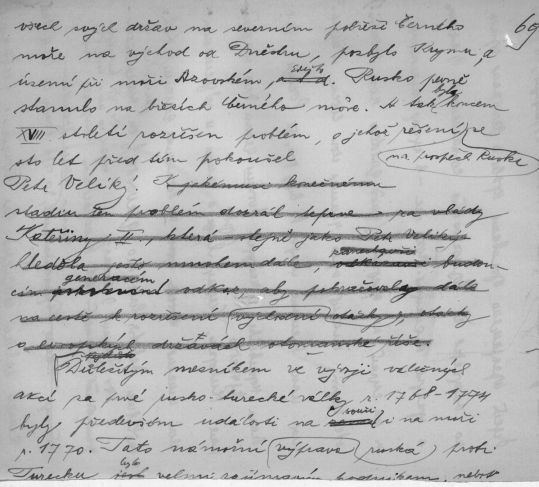 69
všech svých držav na severním pobřeží Černého
moře na východ od Dněstru, pozbylo Krymu, a
území při moři Azovském, atd. Rusko pevně
stanulo na březích Černého moře. A tak koncem
XVIII. století byl rozřešen problém, o jehož řešení se
sto let před tím pokoušel na prospěch Ruska
Petr Veliký. K jakémusi konečnému
stadiu ten problém dozrál teprve za vlády
Kateřiny II, která stejně jako Petr Veliký
hleděla do mnohem dále, budou-
cím generacím odkaz, aby pokračovaly dále
na cestě k rozřešení východní otázky, otázky
o evropských državách otomanské říše.
Důležitým mezníkem ve vývoji válečných
akcí za prvé rusko-turecké války r. 1768-1774
byly především události na souši i na moři
r. 1770. Tato námořní výprava ruská proti
Turecku bylo velmi podnikem, neboť